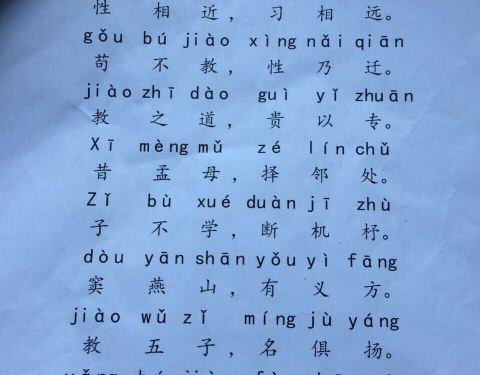 性 相 近 ， 习 相 远 。
gǒu bú jiào xìng nǎi qiān
苟 不 教 ， 性 乃 迁 。
jiào zhī dào guì yǐ zhuān
教 之 道 ， 贵 以 专 。
Xī mèng mǔ zé lín chǔ
昔 孟 母 ， 择 邻 处 。
Zǐ bù xué duàn jī zhù
子 不 学 ， 断 机 杼 。
dòu yān shān yǒu yì fāng
窦 燕 山 ， 有 义 方 。
jiào wǔ zǐ míng jù yáng
教 五 子 ， 名 俱 扬 。